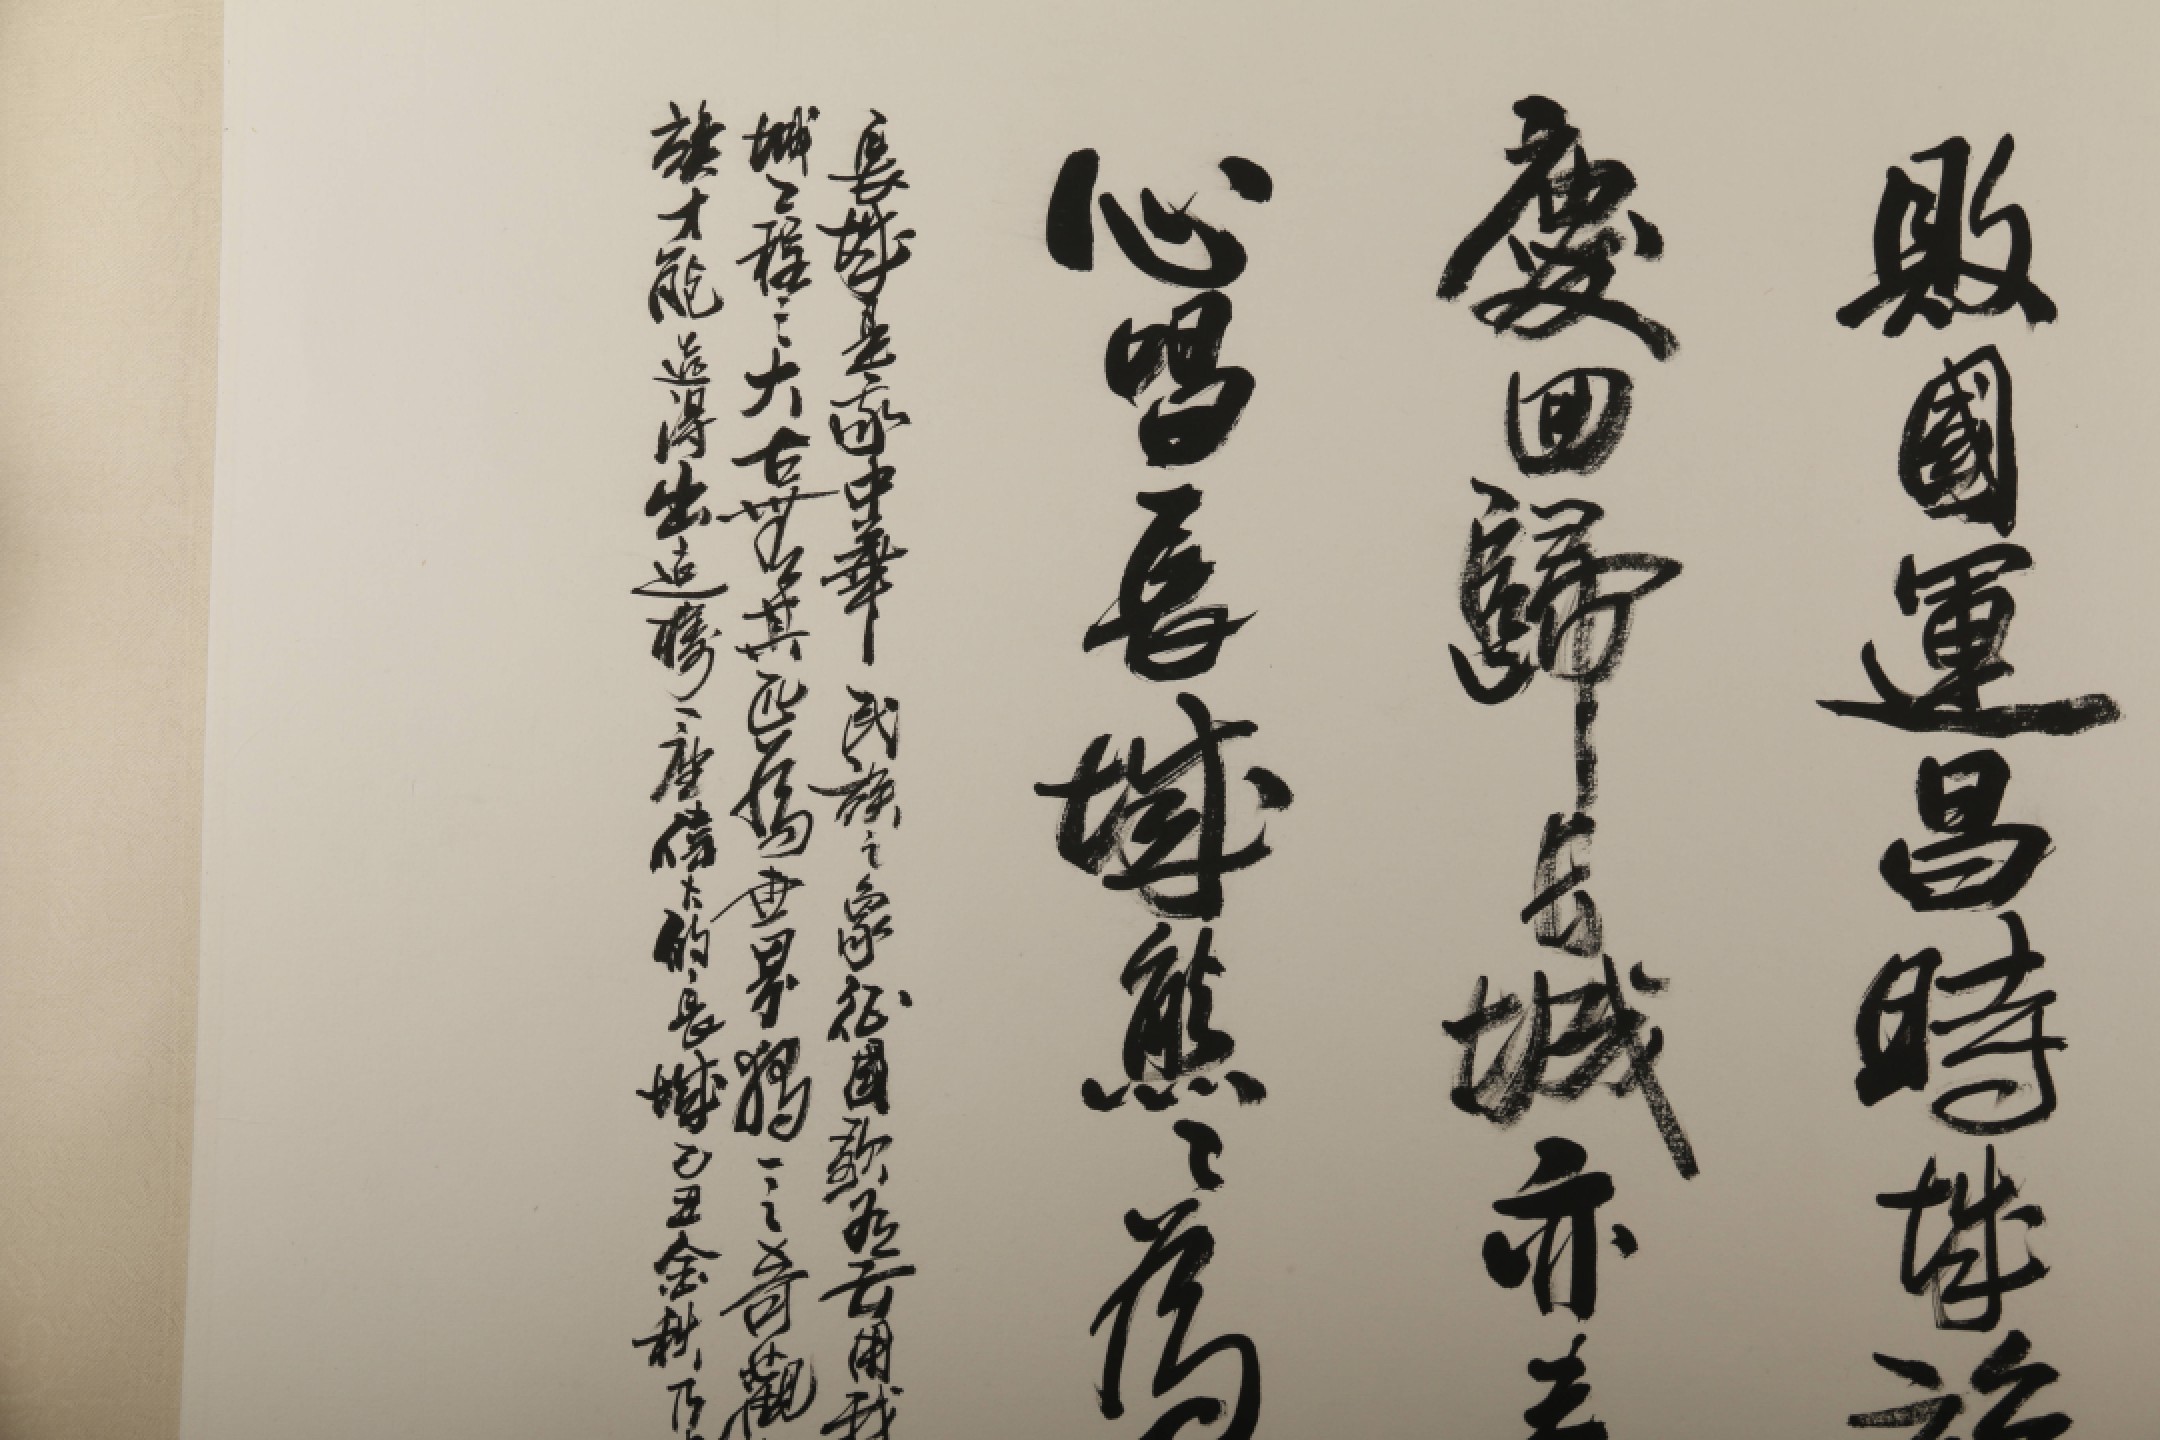 敗國運昌時城
慶回歸長城亦
心唱長城熊〻
長城是家中華民族之象征國歌有云用我
城〻程之大古世其匹為世界獨一之奇觀
族才能造得出這樣一座偉大的長城乙丑金秋乃